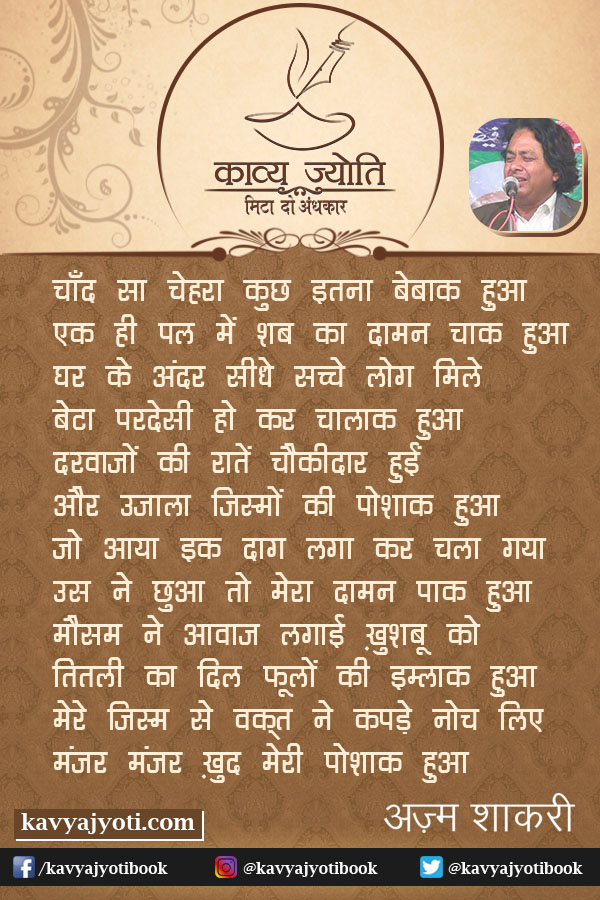 काव्य ज्योति
मिटा दो अंधकार
चाँद सा चेहरा कुछ इतना बेबाक हुआ
एक ही पल में शब का दामन चाक हुआ
घर के अंदर सीधे सच्चे लोग मिले
बेटा परदेसी हो कर चालाक हुआ
दरवाजों की रातें चौकीदार हुईं
और उजाला जिस्मों की पोशाक हुआ
जो आया इक दाग लगा कर चला गया
उस ने छुआ तो मेरा दामन पाक हुआ
मौसम ने आवाज लगाई ख़ुशबू को
तितली का दिल फूलों की इम्लाक हुआ
मेरे जिस्म से वक़्त ने कपड़े नोच लिए
मंजर मंजर ख़ुद मेरी पोशाक हुआ
अज़्म शाकरी
kavyajyoti.com
/kavyajyotibook @kavyajyotibook @kavyajyotibook